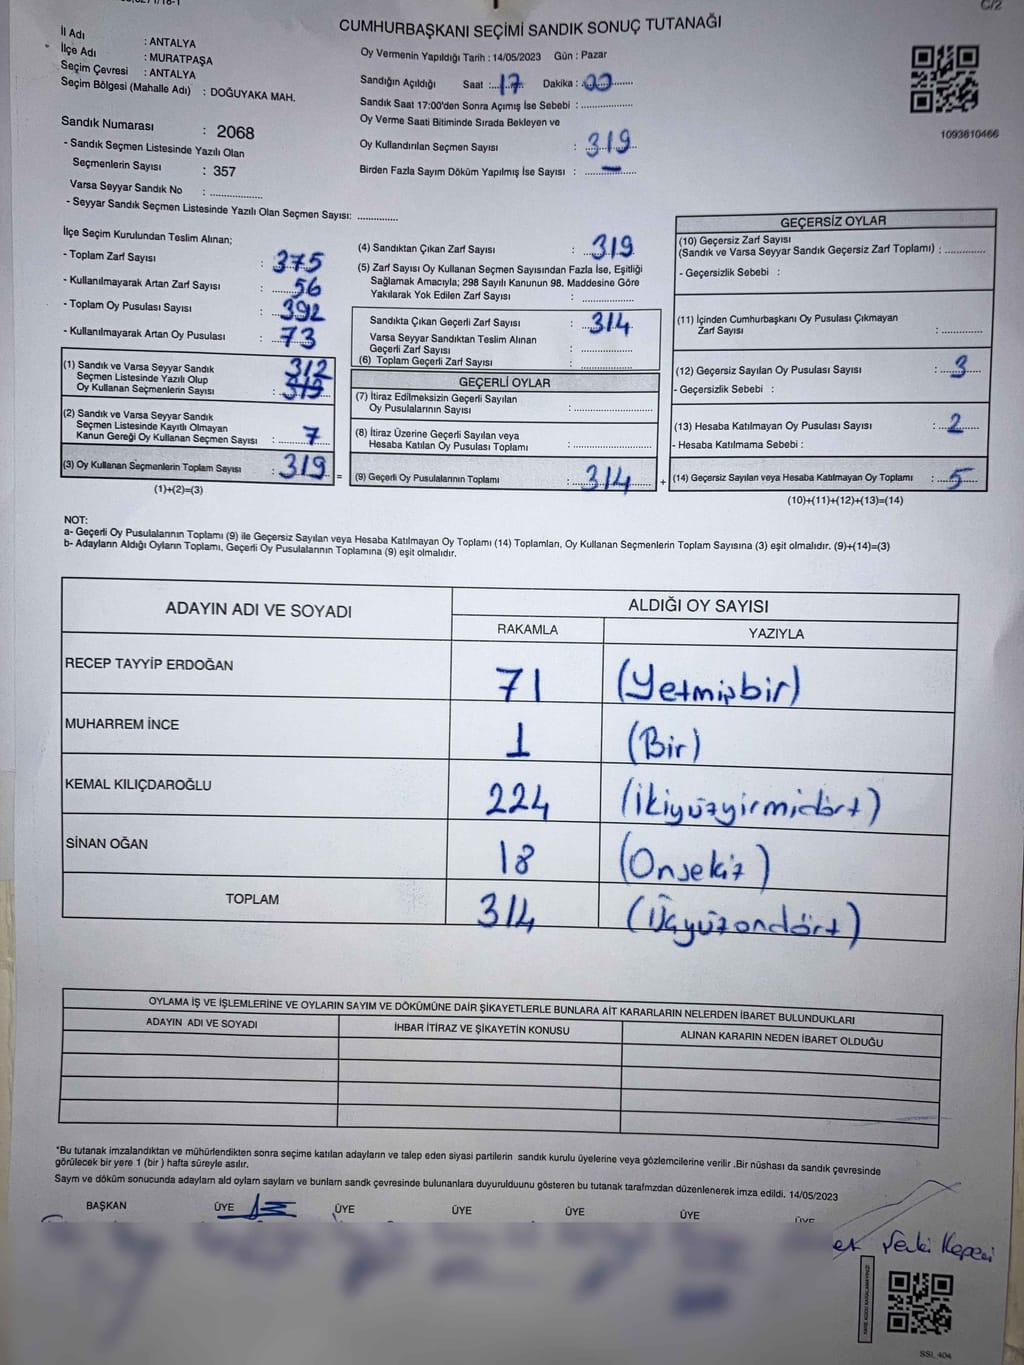 C/2
CUMHURBAŞKANI SEÇİMİ SANDIK SONUÇ TUTANAĞI
İl Adı : ANTALYA
İlçe Adı : MURATPAŞA
Seçim Çevresi : ANTALYA
Seçim Bölgesi (Mahalle Adı) : DOĞUYAKA MAH.
Sandık Numarası : 2068
- Sandık Seçmen Listesinde Yazılı Olan
Seçmenlerin Sayısı : 357
Varsa Seyyar Sandık No : ..................
- Seyyar Sandık Seçmen Listesinde Yazılı Olan Seçmen Sayısı: ..............
Oy Vermenin Yapıldığı Tarih : 14/05/2023 Gün : Pazar
Sandığın Açıldığı Saat : 17 Dakika : 00
Sandık Saat 17:00'den Sonra Açımış İse Sebebi : ..................
Oy Verme Saati Bitiminde Sırada Bekleyen ve
Oy Kullandırılan Seçmen Sayısı : 319
Birden Fazla Sayım Döküm Yapılmış İse Sayısı : —
1093610466
İlçe Seçim Kurulundan Teslim Alınan;
- Toplam Zarf Sayısı : 375
- Kullanılmayarak Artan Zarf Sayısı : 56
- Toplam Oy Pusulası Sayısı : 392
- Kullanılmayarak Artan Oy Pusulası : 73
(1) Sandık ve Varsa Seyyar Sandık 312
Seçmen Listesinde Yazılı Olup
Oy Kullanan Seçmenlerin Sayısı : 319
(2) Sandık ve Varsa Seyyar Sandık
Seçmen Listesinde Kayıtlı Olmayan
Kanun Gereği Oy Kullanan Seçmen Sayısı : 7
(3) Oy Kullanan Seçmenlerin Toplam Sayısı : 319 =
(1)+(2)=(3)
(4) Sandıktan Çıkan Zarf Sayısı : 319
(5) Zarf Sayısı Oy Kullanan Seçmen Sayısından Fazla İse, Eşitliği
Sağlamak Amacıyla; 298 Sayılı Kanunun 98. Maddesine Göre
Yakılarak Yok Edilen Zarf Sayısı : ..................
Sandıkta Çıkan Geçerli Zarf Sayısı : 314
Varsa Seyyar Sandıktan Teslim Alınan
Geçerli Zarf Sayısı : ..................
(6) Toplam Geçerli Zarf Sayısı : ..................
GEÇERLİ OYLAR
(7) İtiraz Edilmeksizin Geçerli Sayılan
Oy Pusulalarının Sayısı : ..................
(8) İtiraz Üzerine Geçerli Sayılan veya
Hesaba Katılan Oy Pusulası Toplamı : ..................
(9) Geçerli Oy Pusulalarının Toplamı : 314 +
GEÇERSİZ OYLAR
(10) Geçersiz Zarf Sayısı
(Sandık ve Varsa Seyyar Sandık Geçersiz Zarf Toplamı) : ..............
- Geçersizlik Sebebi :
(11) İçinden Cumhurbaşkanı Oy Pusulası Çıkmayan
Zarf Sayısı : ..............
(12) Geçersiz Sayılan Oy Pusulası Sayısı : 3
- Geçersizlik Sebebi :
(13) Hesaba Katılmayan Oy Pusulası Sayısı : 2
- Hesaba Katılmama Sebebi :
(14) Geçersiz Sayılan veya Hesaba Katılmayan Oy Toplamı : 5
(10)+(11)+(12)+(13)=(14)
NOT:
a- Geçerli Oy Pusulalarının Toplamı (9) ile Geçersiz Sayılan veya Hesaba Katılmayan Oy Toplamı (14) Toplamları, Oy Kullanan Seçmenlerin Toplam Sayısına (3) eşit olmalıdır. (9)+(14)=(3)
b- Adayların Aldığı Oyların Toplamı, Geçerli Oy Pusulalarının Toplamına (9) eşit olmalıdır.
ADAYIN ADI VE SOYADI ALDIĞI OY SAYISI
RAKAMLA YAZIYLA
RECEP TAYYİP ERDOĞAN 71 (Yetmişbir)
MUHARREM İNCE 1 (Bir)
KEMAL KILIÇDAROĞLU 224 (ikiyüzyirmidört)
SİNAN OĞAN 18 (Onsekiz)
TOPLAM 314 (Üçyüzondört)
OYLAMA İŞ VE İŞLEMLERİNE VE OYLARIN SAYIM VE DÖKÜMÜNE DAİR ŞİKAYETLERLE BUNLARA AİT KARARLARIN NELERDEN İBARET BULUNDUKLARI
ADAYIN ADI VE SOYADI İHBAR İTİRAZ VE ŞİKAYETİN KONUSU ALINAN KARARIN NEDEN İBARET OLDUĞU
*Bu tutanak imzalandıktan ve mühürlendikten sonra seçime katılan adayların ve talep eden siyasi partilerin sandık kurulu üyelerine veya gözlemcilerine verilir .Bir nüshası da sandık çevresinde
görülecek bir yere 1 (bir ) hafta süreyle asılır.
Sayım ve döküm sonucunda adayların ald oyların sayları ve bunların sandk çevresinde bulunanlara duyurulduunu gösteren bu tutanak tarafmzdan düzenlenerek imza edildi. 14/05/2023
BAŞKAN ÜYE ÜYE ÜYE ÜYE ÜYE ÜYE
SSI_404